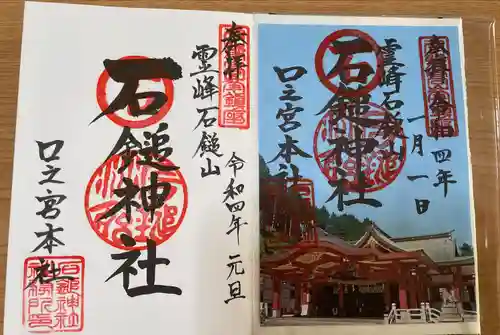 奉拝
霊峰石鎚山
石鎚神社
口之宮本社
令和四年 元旦
奉拝
令和四年
一月一日
霊峰石鎚山
石鎚神社
口之宮本社